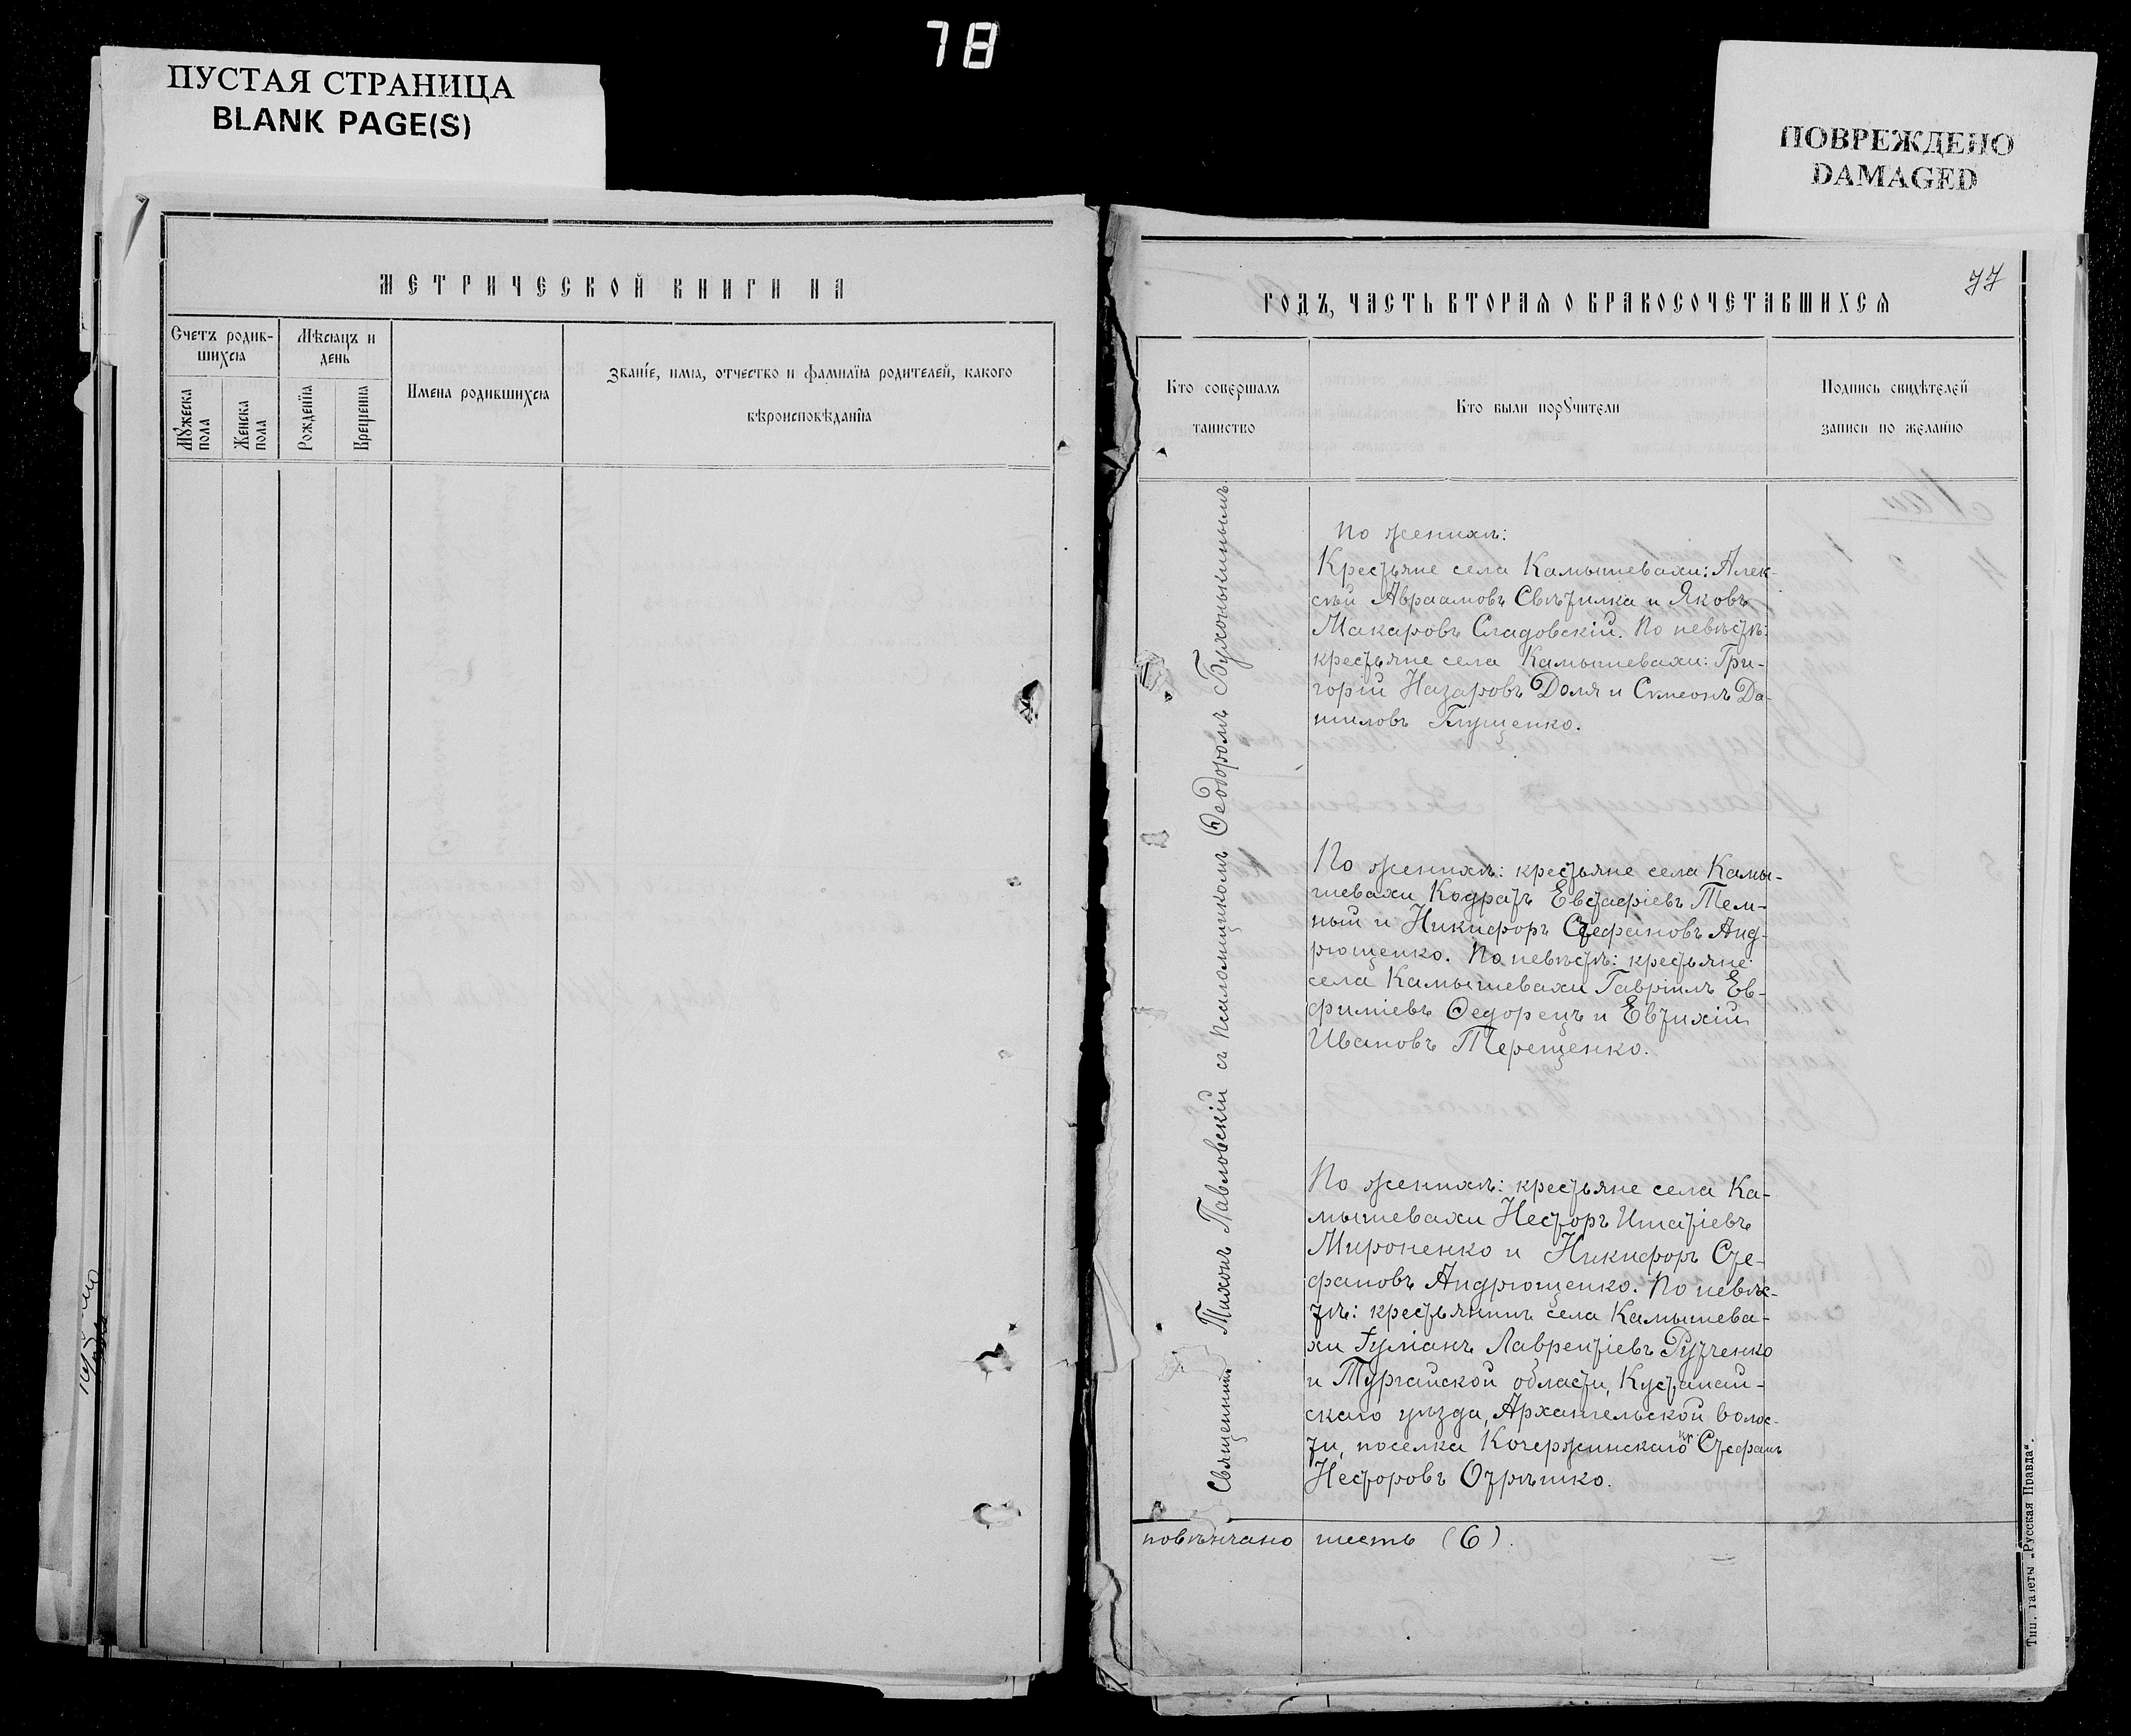 78
ПУСТАЯ СТРАНИЦА
BLANK PAGE(S)
ПОВРЕЖДЕНО
DAMAGED
МЕТРИЧЕСКОЙ КНИГИ НА
Счетъ родив-
шихся
Мѣсяцъ и
день
Имена родившихся
Званіе, имя, отчество и фамилія родителей, какого
вѣроисповѣданія
Мужеска
пола
Женска
пола
Рожденія
Крещенія
77
ГОДЪ, ЧАСТЬ ВТОРАЯ О БРАКОСОЧЕТАВШИХСЯ
Кто совершалъ
таинство
Кто были поручители
Подпись свидѣтелей
записи по желанію
Священникъ Тихонъ Павловскій съ Псаломщикомъ Ѳеодоромъ
По женихѣ:
Крестьяне села Камышевахи: Алек-
сѣй Авраамовъ Свѣтилка и Яковъ
Макаровъ Сладовскій. По невѣстѣ:
крестьяне села Камышевахи: Гри-
горій Назаровъ Доля и Симеонъ Да-
ниловъ Глущенко.
По женихѣ: крестьяне села Камы-
шевахи Кодратъ Евстафіевъ Тем-
ный и Никифоръ Стефановъ Анд-
рющенко. По невѣстѣ: крестьяне
села Камышевахи Гавріилъ Ев-
фиміевъ Ѳедорецъ и Евтихій
Ивановъ Терещенко.
По женихѣ: крестьяне села Ка-
мышевахи Несторъ Игнатіевъ
Мироненко и Никифоръ Сте-
фановъ Андрющенко. По невѣс-
тѣ: крестьянинъ села Камышева-
хи Іуліанъ Лаврентіевъ Рутченко
и Тургайской области, Кустанай-
скаго уѣзда, Архангельской волос-
ти, поселка Кочержинскаго кр. Стефанъ
Несторовъ Отрѣшко.
повѣнчано шесть (6).
Тип. газеты „Русская Правда“.